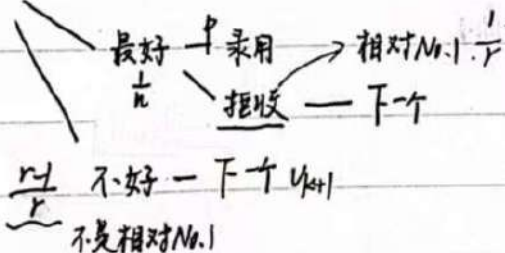 最好 P 录用 相对No.1 1/r
1/n 拒收 — 下一个
r-1/r 不好 — 下一个 Vk+1
不是相对No.1